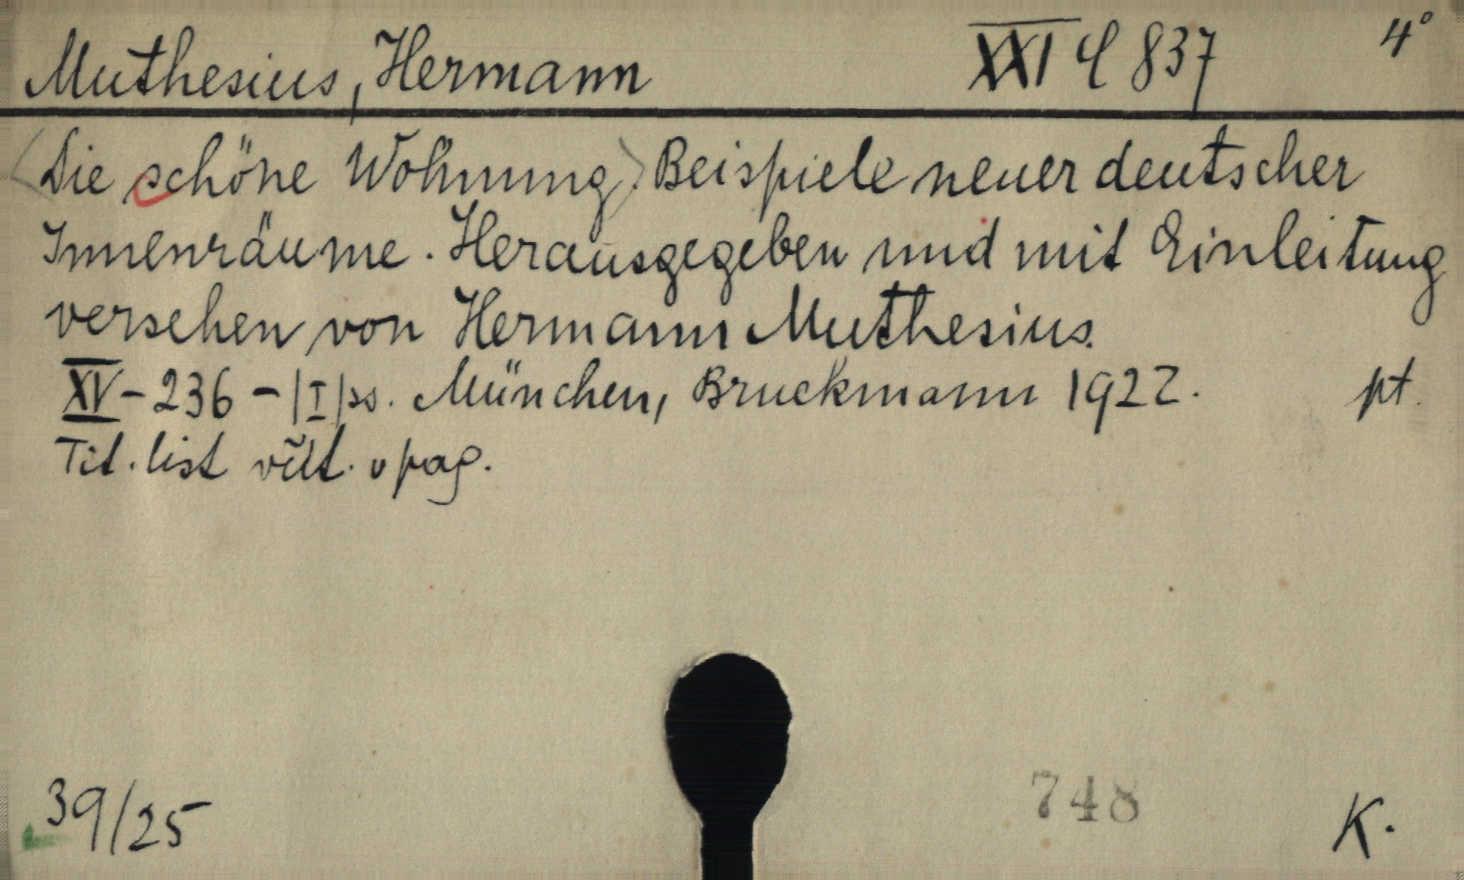 Muthesius, Hermann XXI C 837 4°
(Die schöne Wohnung). Beispiele neuer deutscher
Innenräume. Herausgegeben und mit Einleitung
versehen von Hermann Muthesius.
XV - 236 - |I| ss. München, Bruckmann 1922. pt.
Tit. list pag.
39/25 748 K.